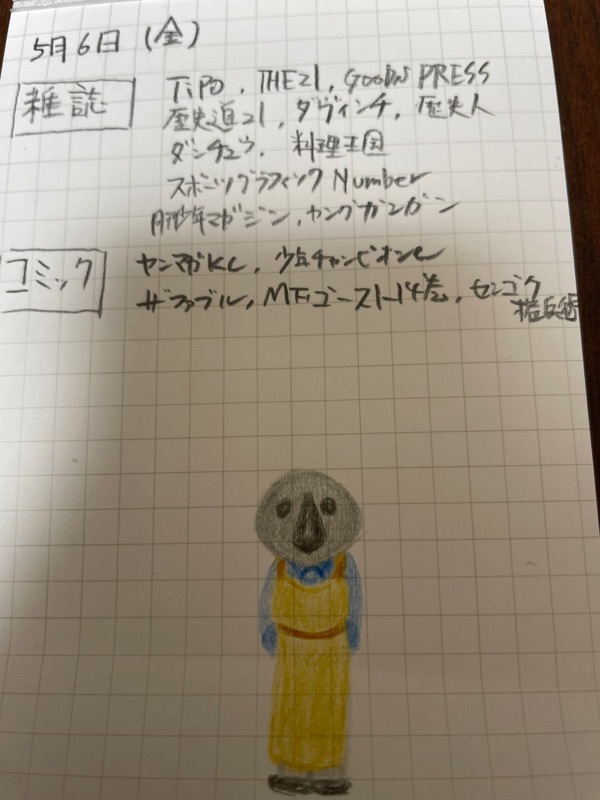 5月6日 (金)
雑誌
TiPO, THE21, GOODS PRESS
歴史道21, ダヴィンチ, 歴史人
ダンチュウ, 料理王国
スポーツグラフィック Number
月刊少年マガジン, ヤングガンガン
コミック
ヤンマガKC, 少年チャンピオンC
ザファブル, MFゴースト1-14巻, センゴク